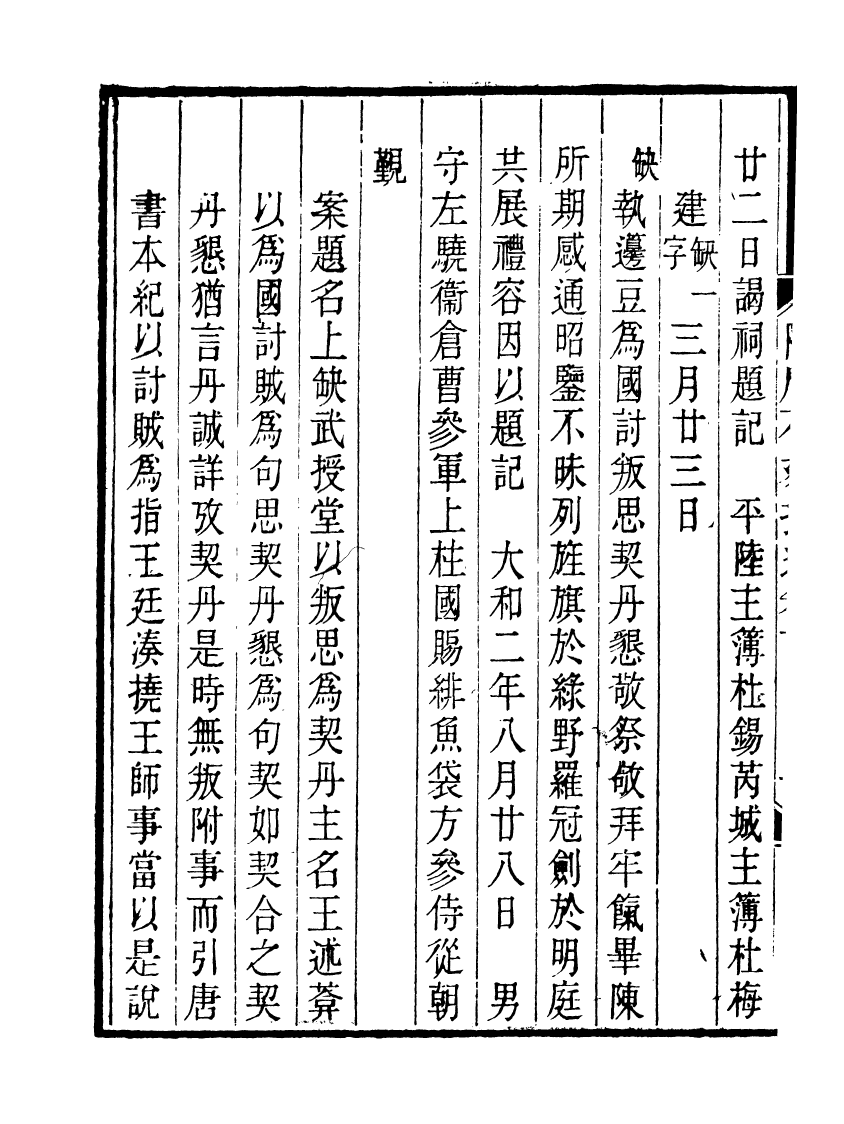 廿二日謁祠題記　平陸主簿杜錫芮城主簿杜梅
建缺一字三月廿三日
缺執邊豆爲國討叛思契丹懇敬祭敬拜牢餼畢陳
所期感通昭鑒不昧列旌旗於綠野羅冠劍於明庭
共展禮容因以題記　大和二年八月廿八日　男
守左驍衞倉曹參軍上柱國賜緋魚袋方參侍從朝
覲
案題名上缺武授堂以叛思爲契丹主名王述菴
以爲國討賊爲句思契丹懇爲句契如契合之契
丹懇猶言丹誠詳攷契丹是時無叛附事而引唐
書本紀以討賊爲指王廷湊撓王師事當以是說